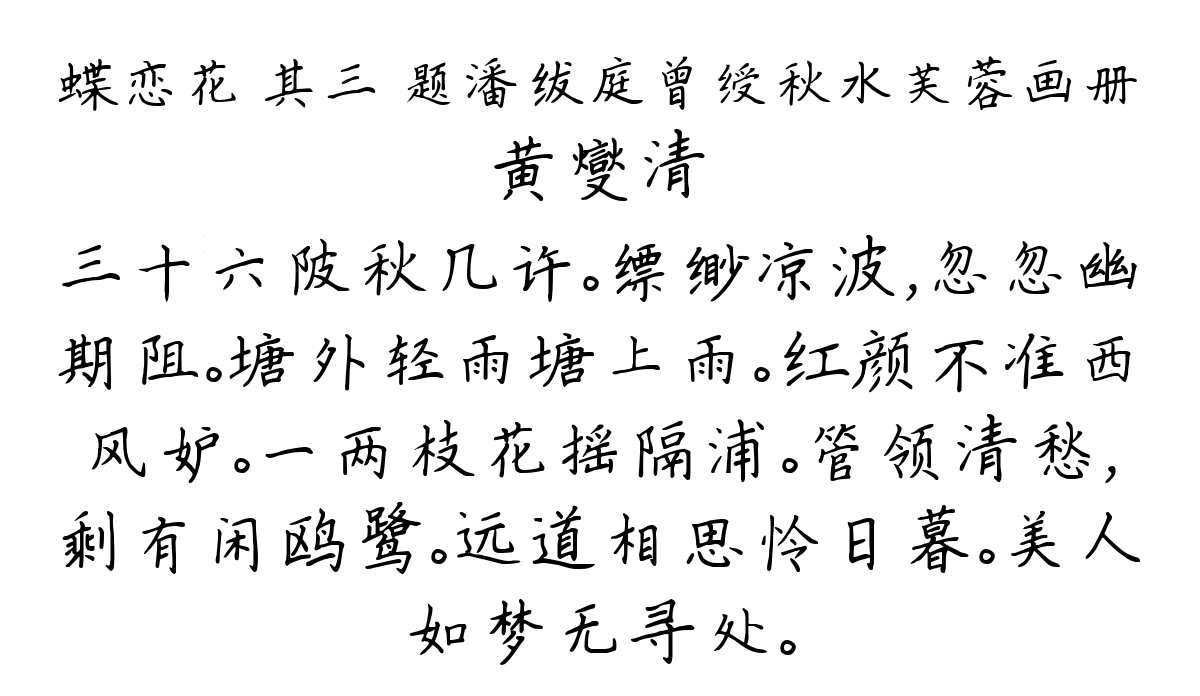 蝶恋花 其三 题潘绂庭曾绶秋水芙蓉画册
黄燮清
三十六陂秋几许。缥缈凉波,忽忽幽
期阻。塘外轻雨塘上雨。红颜不准西
风妒。一两枝花摇隔浦。管领清愁,
剩有闲鸥鹭。远道相思怜日暮。美人
如梦无寻处。